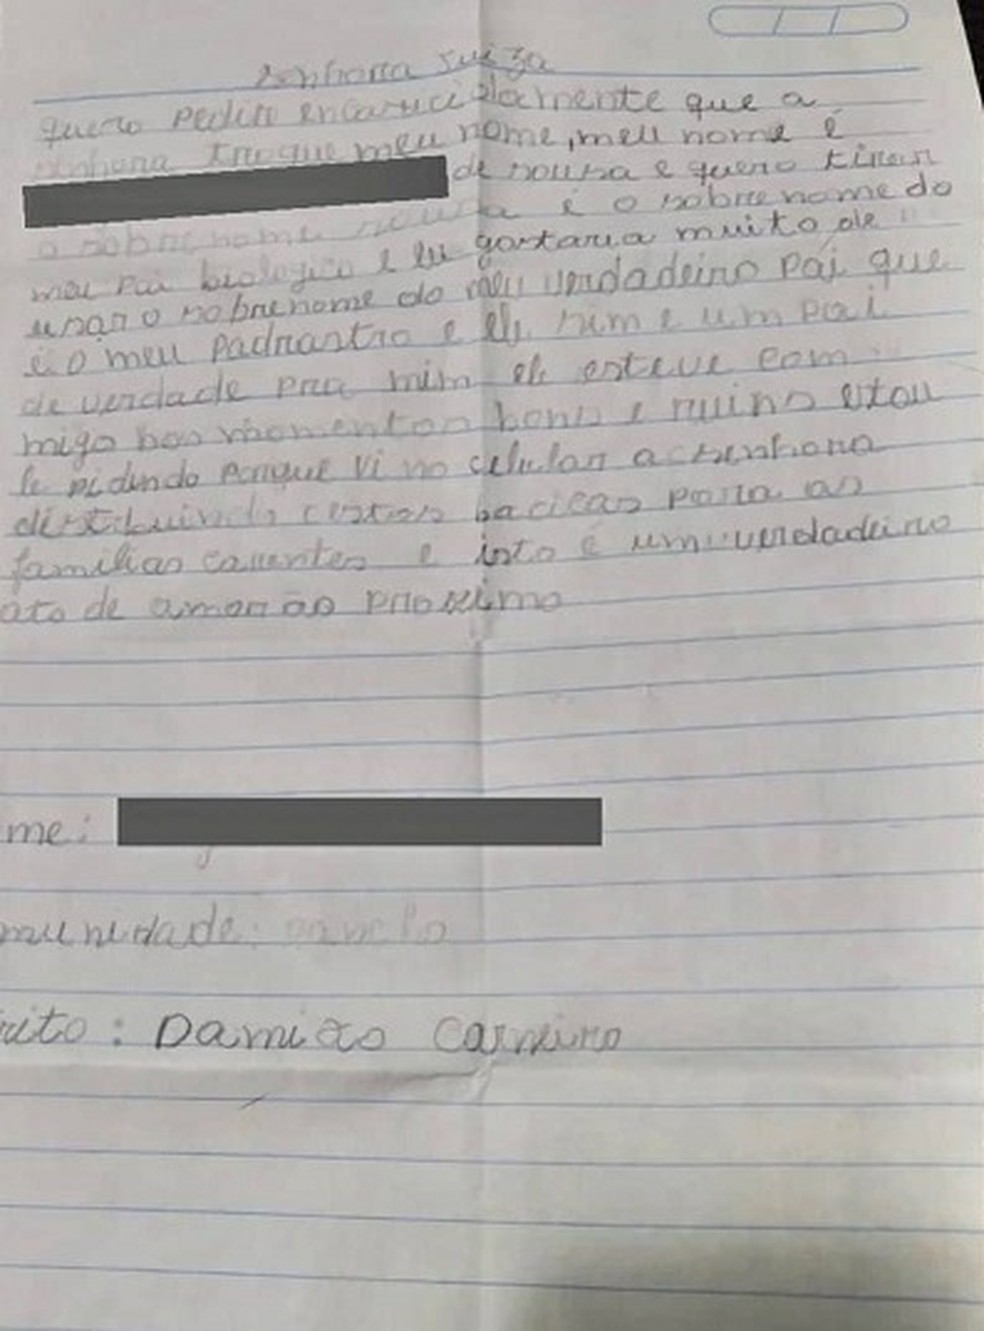 senhora suiza
quero pedir encarecidamente que a
senhora troque meu nome, meu nome é
de sousa e quero tirar
o sobrenome sousa é o sobrenome do
meu pai biologico e eu gostaria muito de
usar o sobrenome do meu verdadeiro pai que
é o meu padrastro e ele sim e um pai
de verdade pra mim ele esteve com
migo nos momentos bons e ruins estou
le pidindo porque vi no celular a senhora
distribuindo cestas bacicas para as
familias carentes e isto é um verdadeiro
ato de amor ao proximo
me:
munidade:
rito: Damião Carneiro